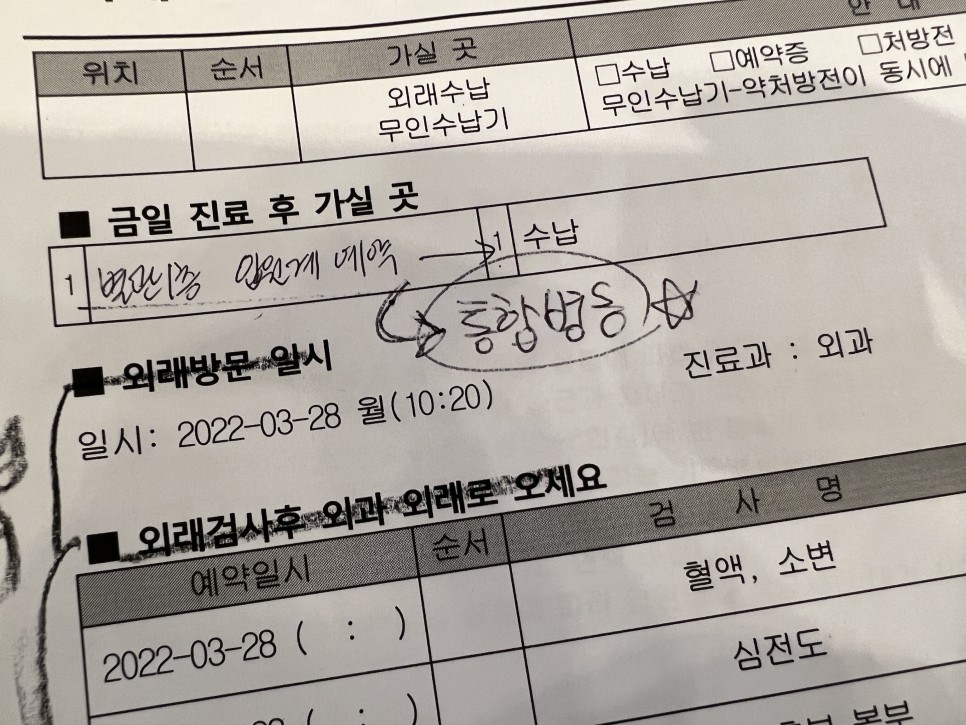 안 내
위치 순서 가실 곳
외래수납 □수납 □예약증 □처방전
무인수납기 무인수납기-약처방전이 동시에
■ 금일 진료 후 가실 곳
1 별관1층 입원계 예약 → 1 수납
통합병동 ☆
■ 외래방문 일시
일시: 2022-03-28 월(10:20) 진료과 : 외과
■ 외래검사후 외과 외래로 오세요
예약일시 순서 검 사 명
2022-03-28 ( : ) 혈액, 소변
심전도
( : )